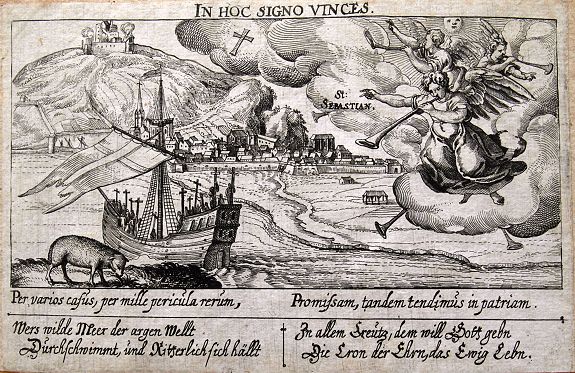 IN HOC SIGNO VINCES.
St.
SEBASTIAN.
Per varios casus, per mille pericula rerum,
Promissam, tandem tendimus in patriam.
Wers wilde Meer der argen Wellt
Durchschwimmt, und Ritterlich sich hällt
In allem Creütz, dem will Gott gebn
Die Cron der Ehrn, das Ewig Lebn.